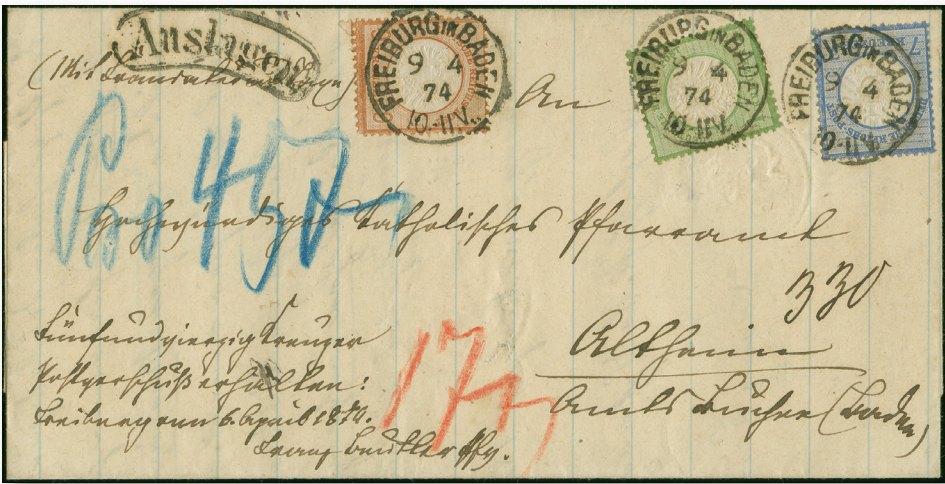 Auslagen
FREIBURG IN BADEN
9 4
74
10-11V.
FREIBURG IN BADEN
9 4
74
10-11V.
FREIBURG IN BADEN
9 4
74
10-11V.
7
An
Hochwürdiges Catholisches Pfarramt
330
Altheim
Amts Buchen (Baden)
Fünfundvierzig Kreuzer
Postvorschuß erhalten:
Freiburg am 6. April 1874.
Franz